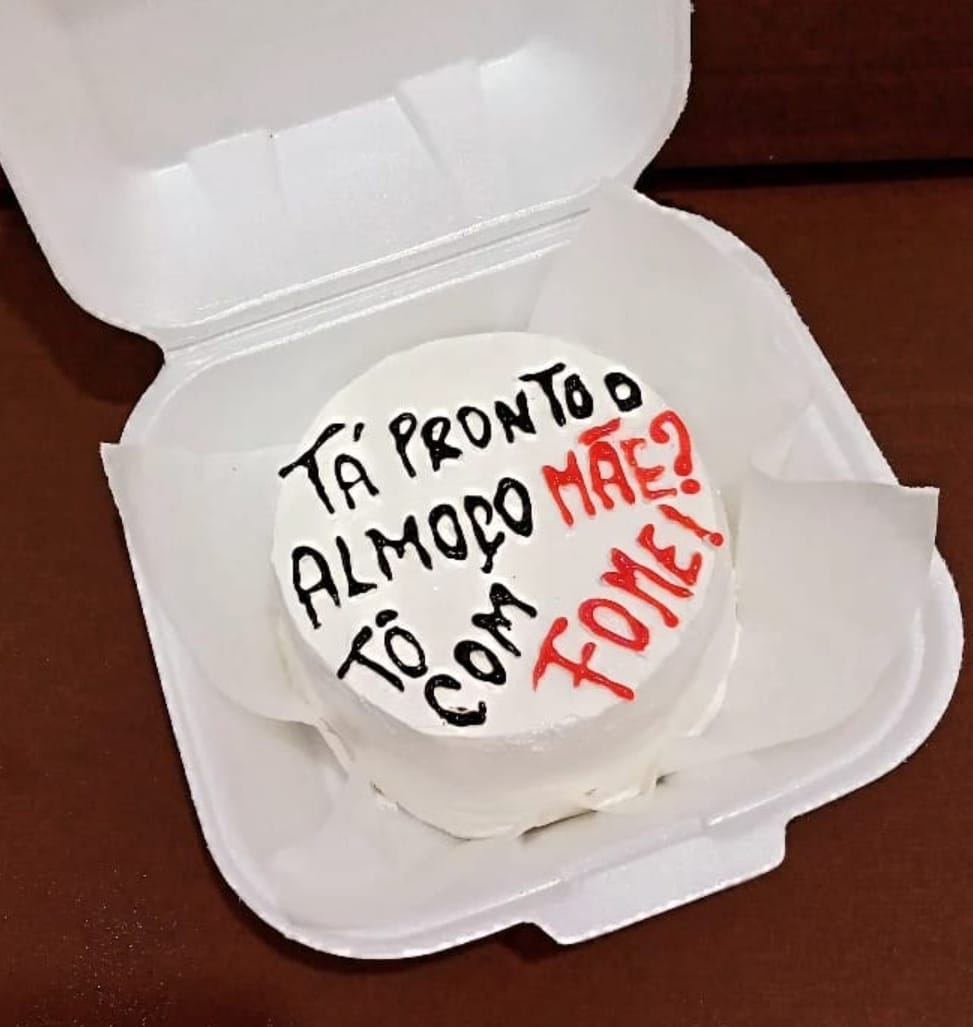 TÁ PRONTO O
ALMOÇO MÃE?
TÔ COM FOME!